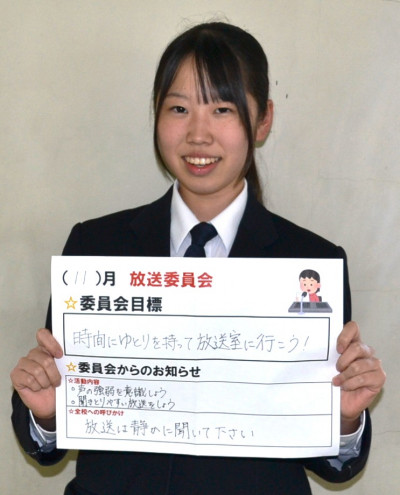 (11)月 放送委員会
☆委員会目標
時間にゆとりを持って放送室に行こう!
☆委員会からのお知らせ
☆活動内容
・声の強弱を意識しよう
・聞きとりやすい放送をしよう
☆全校への呼びかけ
放送は静かに聞いて下さい